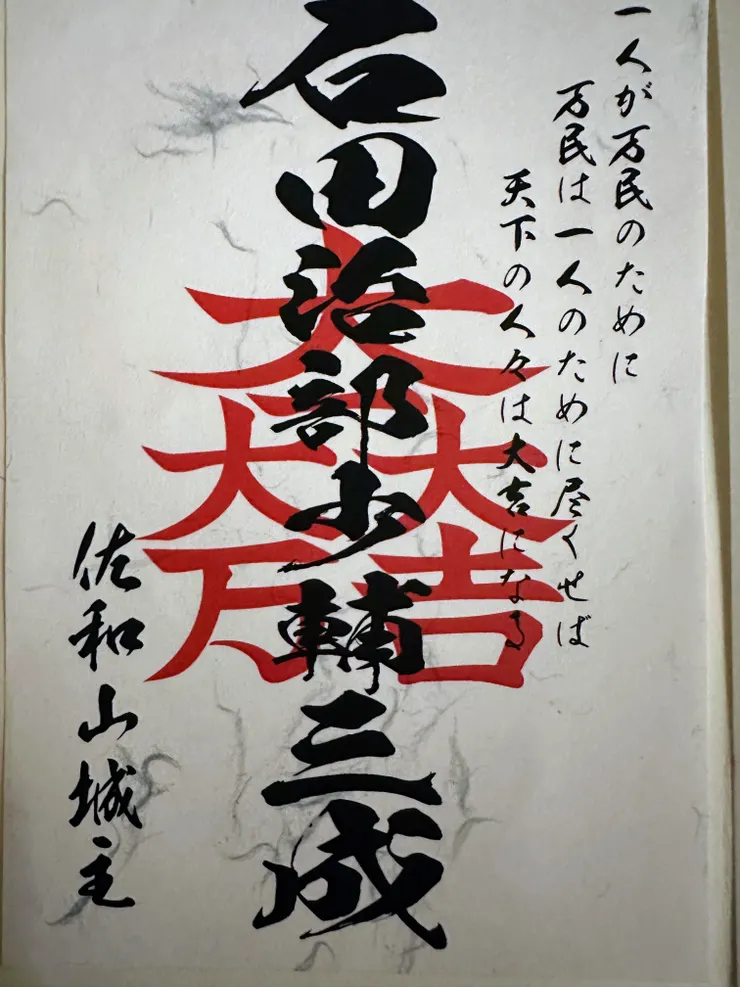 一人が万民のために
万民は一人のために尽くせば
天下の人々は大吉になる
石田治部少輔三成
大一大万大吉
佐和山城主